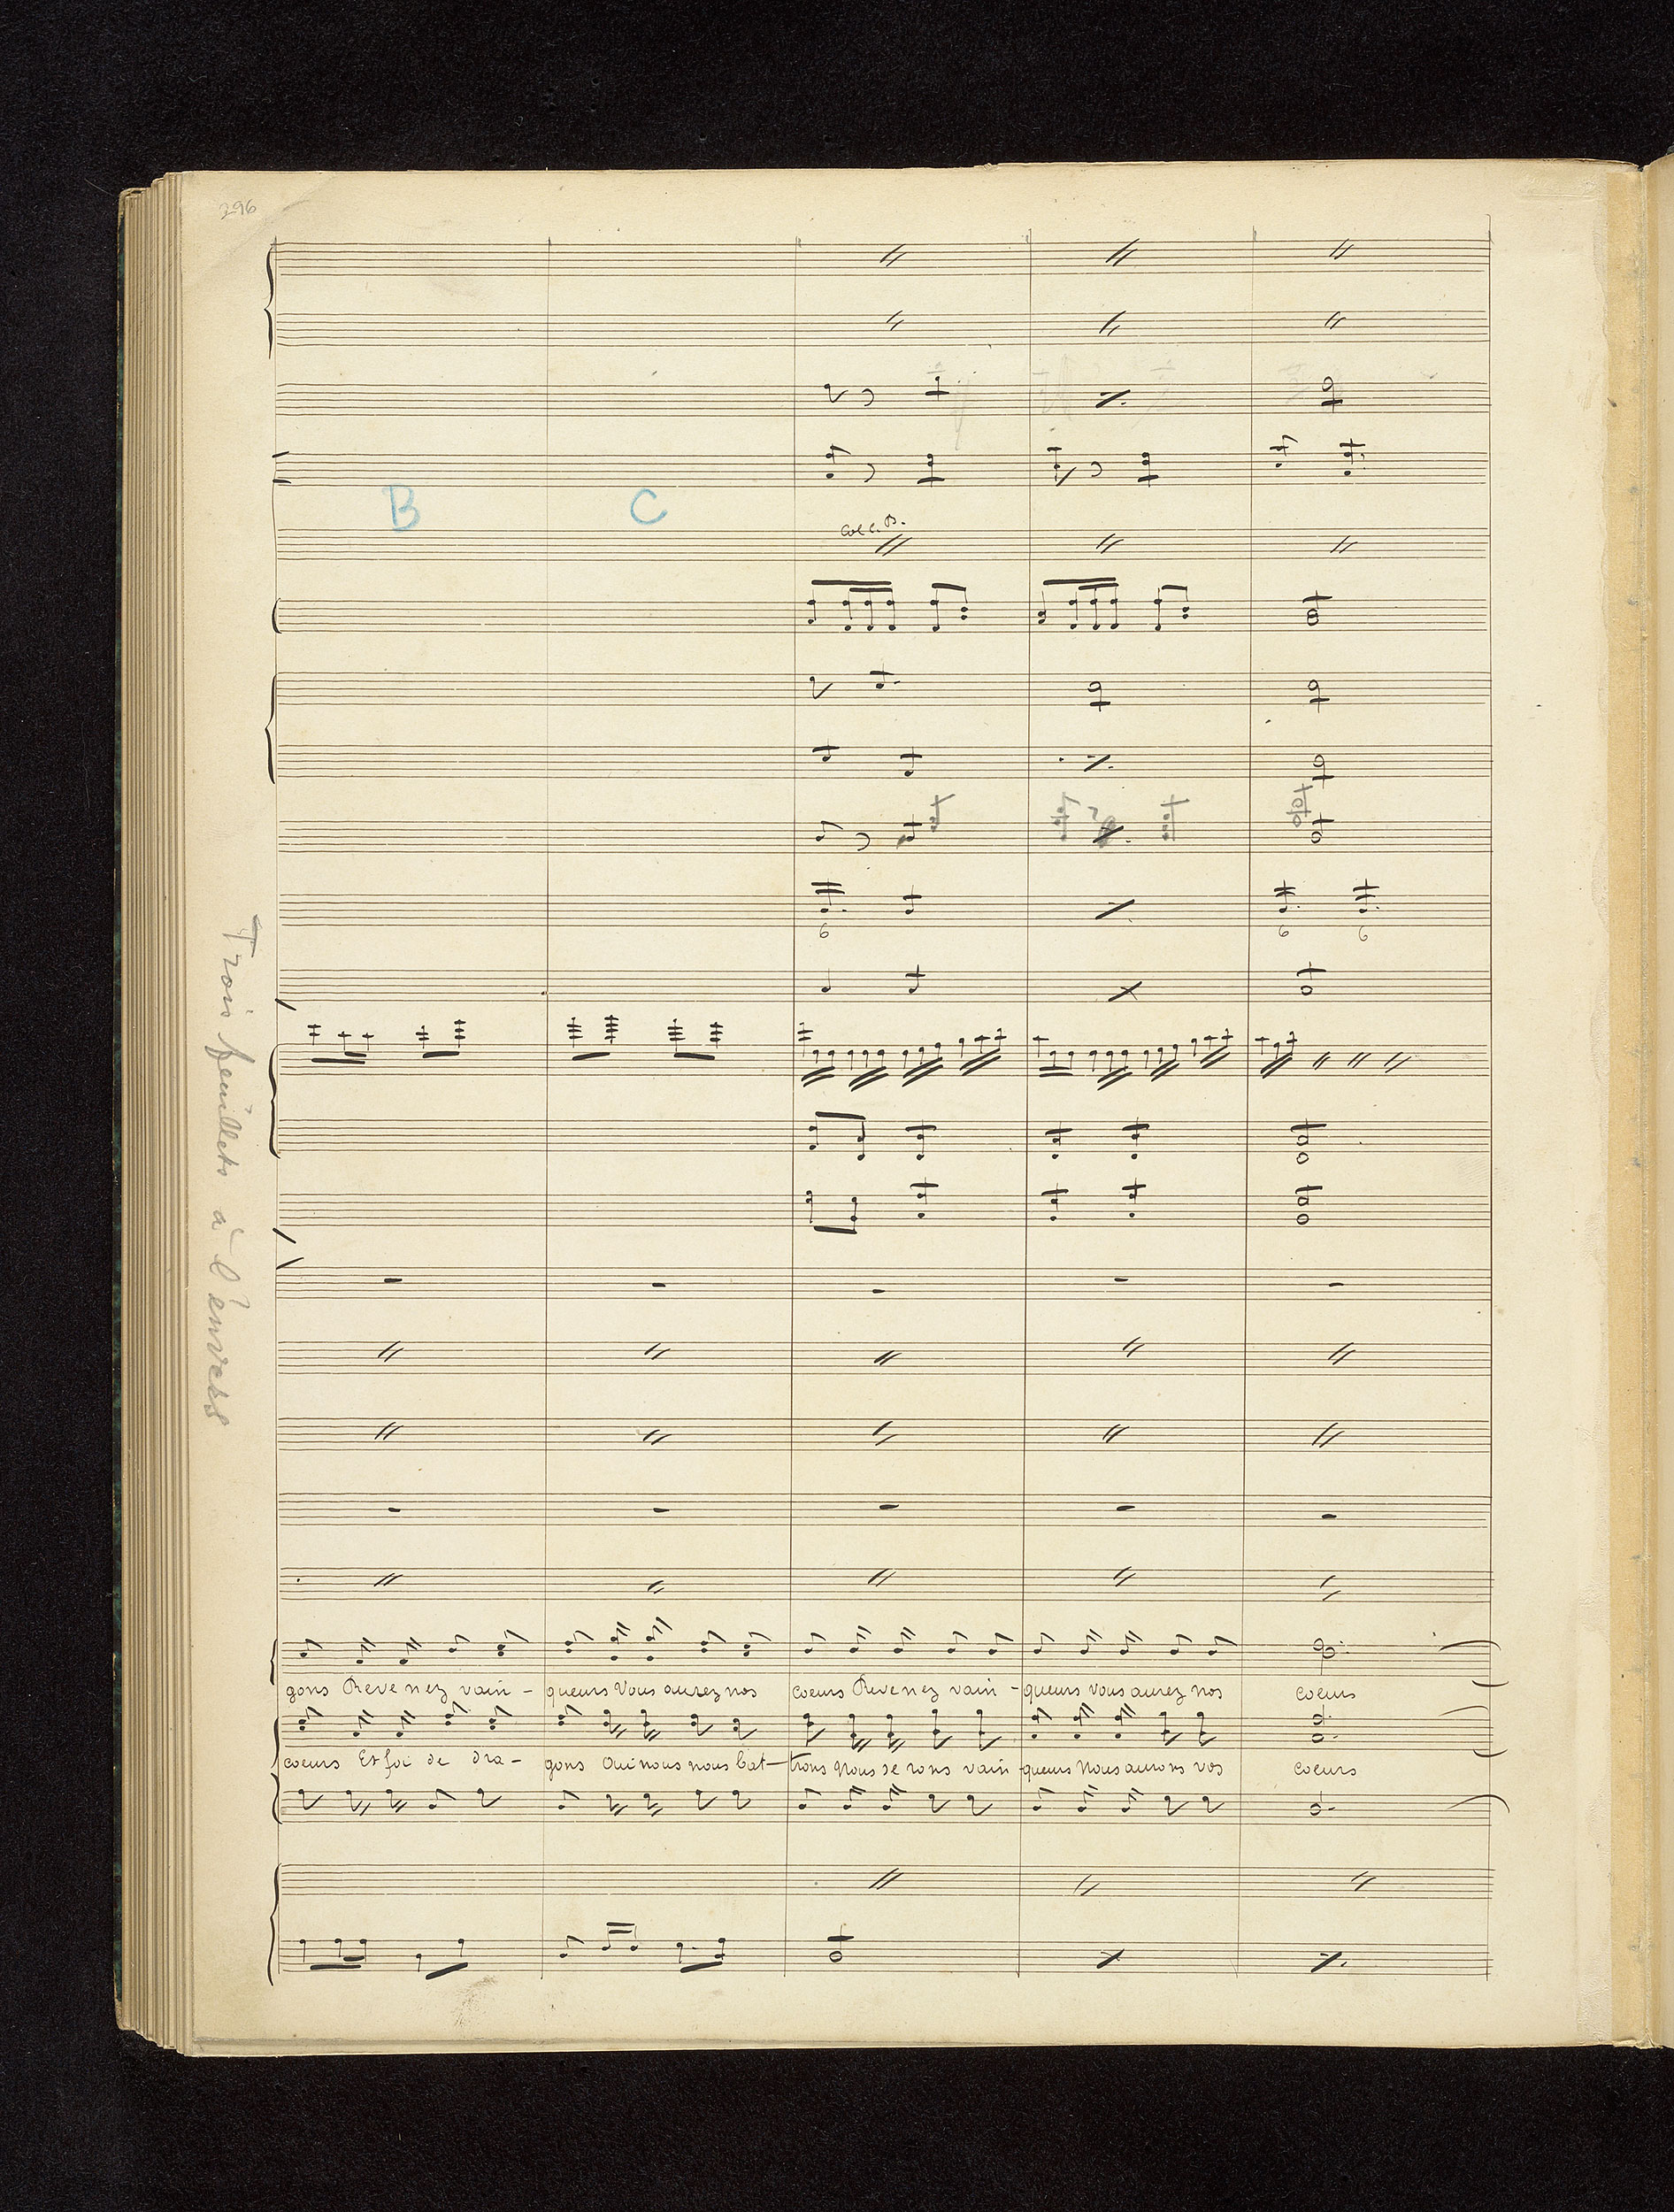 296
B C
Col C. B.
6 6 6
Trois feuillets à l'envers
gons Revenez vain - queurs Vous aurez nos coeurs Revenez vain - queurs vous aurez nos coeurs
coeurs Et foi de dra - gons Oui nous nous bat - trons Nous se rons vain queurs Nous aurons vos coeurs